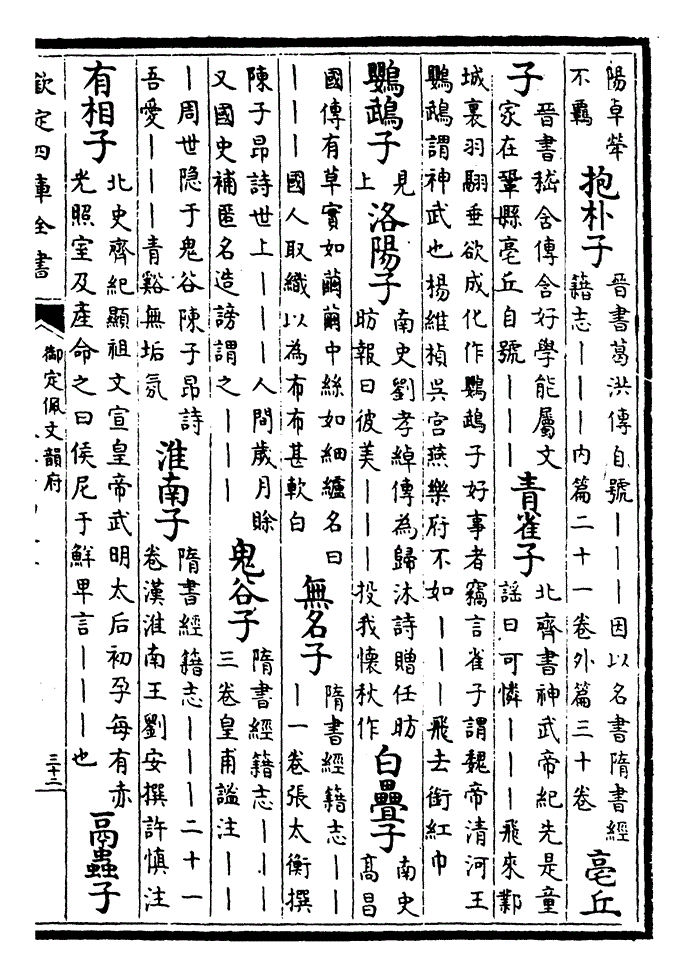 陽卓犖
不羈
抱朴子
晉書葛洪傳自號丨丨丨因以名書隋書經
籍志丨丨丨内篇二十一卷外篇三十卷
亳丘
子
晉書嵇含傳含好學能屬文
家在鞏縣亳丘自號丨丨丨
青雀子
北齊書神武帝紀先是童
謡曰可憐丨丨丨飛來鄴
城裏羽翮垂欲成化作鸚鵡子好事者竊言雀子謂魏帝清河王
鸚鵡謂神武也楊維楨吳宮燕樂府不如丨丨丨飛去銜紅巾
鸚鵡子
見
上
洛陽子
南史劉孝綽傳為歸沐詩贈任昉
昉報曰彼美丨丨丨投我懷秋作
白疊子
南史
高昌
國傳有草實如繭繭中絲如細纑名曰
丨丨丨國人取織以為布布甚軟白
無名子
隋書經籍志丨丨
丨一卷張太衡撰
陳子昂詩世上丨丨丨人間歲月賖
又國史補匿名造謗謂之丨丨丨
鬼谷子
隋書經籍志丨丨丨
三卷皇甫謐注丨丨
丨周世隐于鬼谷陳子昂詩
吾愛丨丨丨青谿無垢氛
淮南子
隋書經籍志丨丨丨二十一
卷漢淮南王劉安撰許慎注
有相子
北史齊紀顯祖文宣皇帝武明太后初孕每有赤
光照室及產命之曰侯尼于鮮卑言丨丨丨也
鬲蟲子
欽定四庫全書
御定佩文韻府
三十二